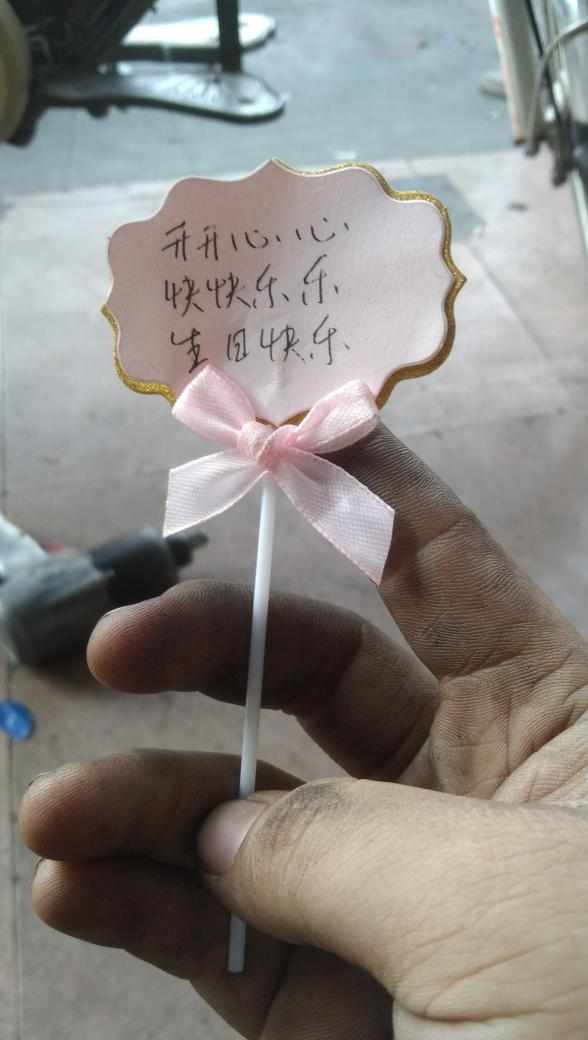 开开心心
快快乐乐
生日快乐